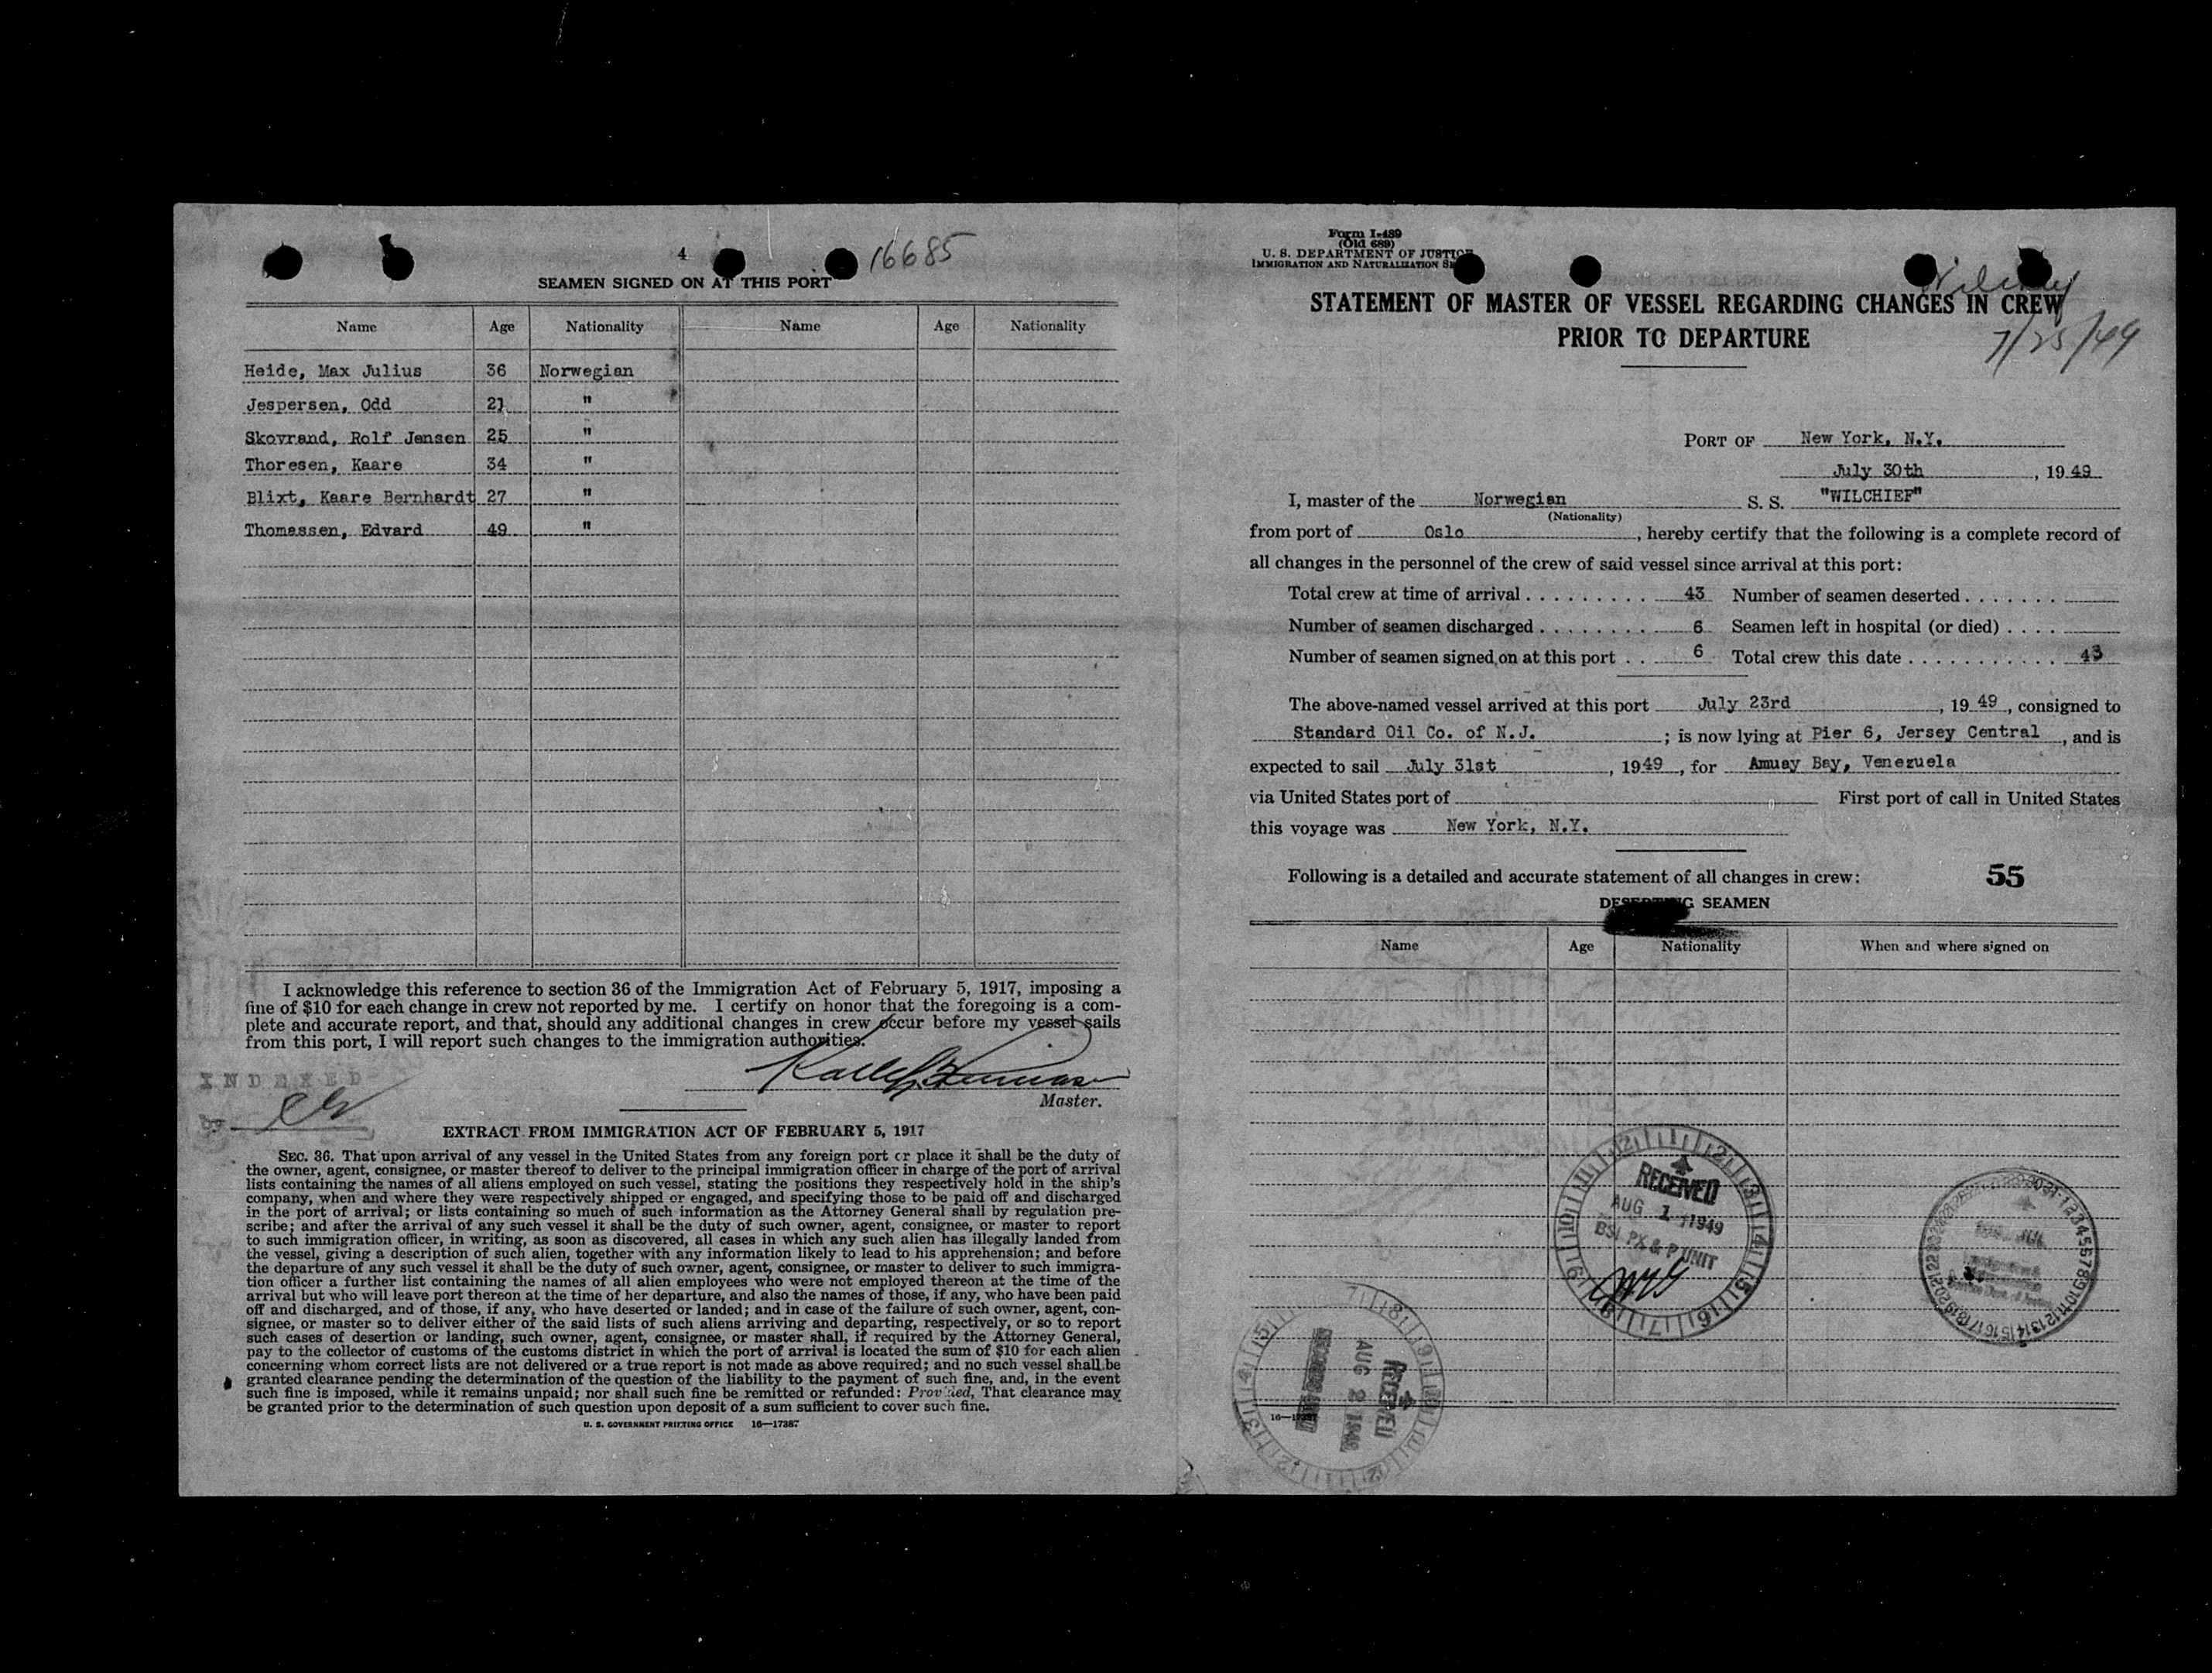 4
16685
SEAMEN SIGNED ON AT THIS PORT
Name Age Nationality Name Age Nationality
Heide, Max Julius 36 Norwegian
Jespersen, Odd 21 "
Skovrand, Rolf Jensen 25 "
Thoresen, Kaare 34 "
Blixt, Kaare Bernhardt 27 "
Thomassen, Edvard 49 "
I acknowledge this reference to section 36 of the Immigration Act of February 5, 1917, imposing a
fine of $10 for each change in crew not reported by me. I certify on honor that the foregoing is a com-
plete and accurate report, and that, should any additional changes in crew occur before my vessel sails
from this port, I will report such changes to the immigration authorities.
INDEXED
Master.
EXTRACT FROM IMMIGRATION ACT OF FEBRUARY 5, 1917
SEC. 36. That upon arrival of any vessel in the United States from any foreign port or place it shall be the duty of
the owner, agent, consignee, or master thereof to deliver to the principal immigration officer in charge of the port of arrival
lists containing the names of all aliens employed on such vessel, stating the positions they respectively hold in the ship's
company, when and where they were respectively shipped or engaged, and specifying those to be paid off and discharged
in the port of arrival; or lists containing so much of such information as the Attorney General shall by regulation pre-
scribe; and after the arrival of any such vessel it shall be the duty of such owner, agent, consignee, or master to report
to such immigration officer, in writing, as soon as discovered, all cases in which any such alien has illegally landed from
the vessel, giving a description of such alien, together with any information likely to lead to his apprehension; and before
the departure of any such vessel it shall be the duty of such owner, agent, consignee, or master to deliver to such immigra-
tion officer a further list containing the names of all alien employees who were not employed thereon at the time of the
arrival but who will leave port thereon at the time of her departure, and also the names of those, if any, who have been paid
off and discharged, and of those, if any, who have deserted or landed; and in case of the failure of such owner, agent, con-
signee, or master so to deliver either of the said lists of such aliens arriving and departing, respectively, or so to report
such cases of desertion or landing, such owner, agent, consignee, or master shall, if required by the Attorney General,
pay to the collector of customs of the customs district in which the port of arrival is located the sum of $10 for each alien
concerning whom correct lists are not delivered or a true report is not made as above required; and no such vessel shall be
granted clearance pending the determination of the question of the liability to the payment of such fine, and, in the event
such fine is imposed, while it remains unpaid; nor shall such fine be remitted or refunded: Provided, That clearance may
be granted prior to the determination of such question upon deposit of a sum sufficient to cover such fine.
U. S. GOVERNMENT PRINTING OFFICE 16—17387
Form I-489
(Old 689)
U. S. DEPARTMENT OF JUSTICE
IMMIGRATION AND NATURALIZATION
STATEMENT OF MASTER OF VESSEL REGARDING CHANGES IN CREW
PRIOR TO DEPARTURE
7/25/49
PORT OF New York, N.Y.
July 30th, 1949
I, master of the Norwegian S. S. "WILCHIEF"
(Nationality)
from port of Oslo, hereby certify that the following is a complete record of
all changes in the personnel of the crew of said vessel since arrival at this port:
Total crew at time of arrival 43 Number of seamen deserted
Number of seamen discharged 6 Seamen left in hospital (or died)
Number of seamen signed on at this port 6 Total crew this date 43
The above-named vessel arrived at this port July 23rd, 1949, consigned to
Standard Oil Co. of N.J. ; is now lying at Pier 6, Jersey Central, and is
expected to sail July 31st, 1949, for Amuay Bay, Venezuela
via United States port of First port of call in United States
this voyage was New York, N.Y.
Following is a detailed and accurate statement of all changes in crew: 55
DESERTING SEAMEN
Name Age Nationality When and where signed on
RECEIVED
AUG 1 1949
BSI PX & P UNIT
RECEIVED
AUG 2 1949